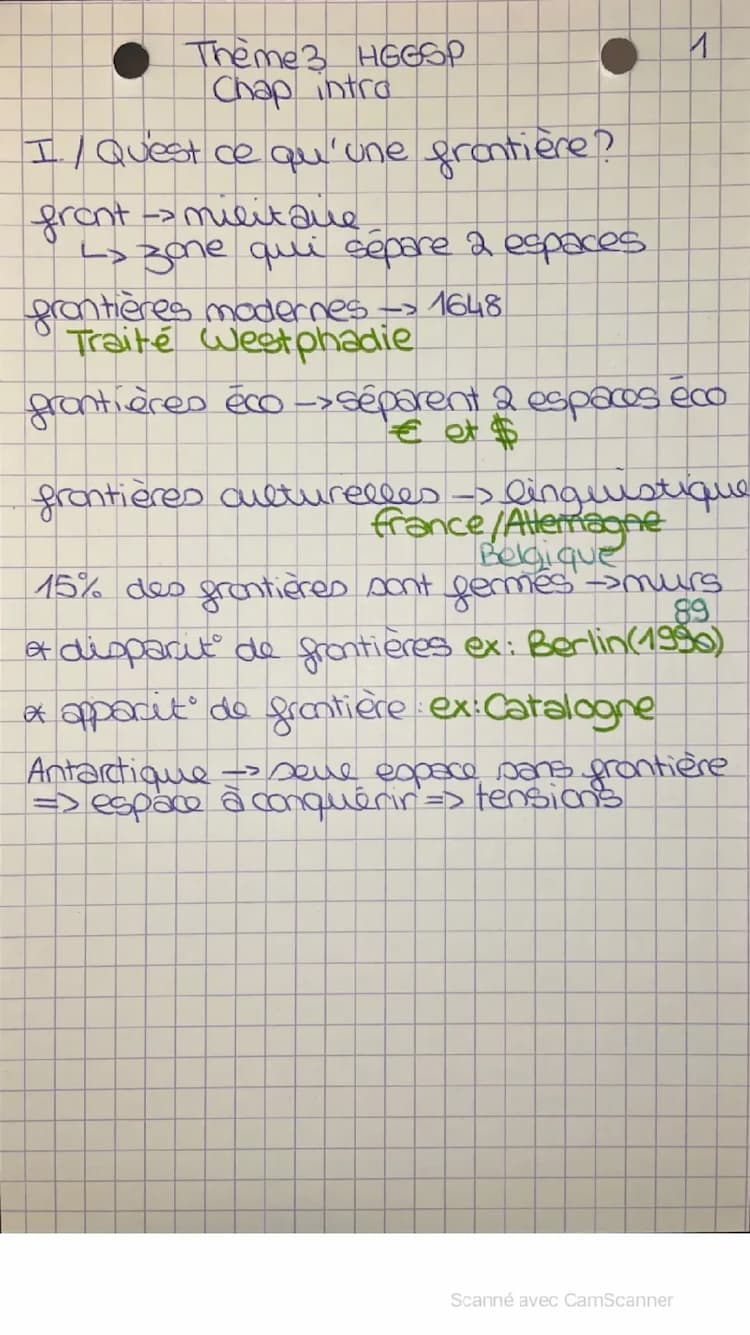 Thème 3 HGGSP
1
Chap intro
I./ Qu'est ce qu'une frontière?
front -> militaire
↳ zone qui sépare 2 espaces
frontières modernes -> 1648
Traité Westphadie
frontières éco -> séparent 2 espaces éco
€ et $
frontières culturelles -> linguistique
france/Allemagne
Belgique
15% des frontières sont fermés -> murs
89
* disparit° de frontières ex: Berlin(1990)
* apparit° de frontière : ex: Catalogne
Antarctique -> seul espace sans frontière
=> espace à conquérir => tensions
Scanné avec CamScanner